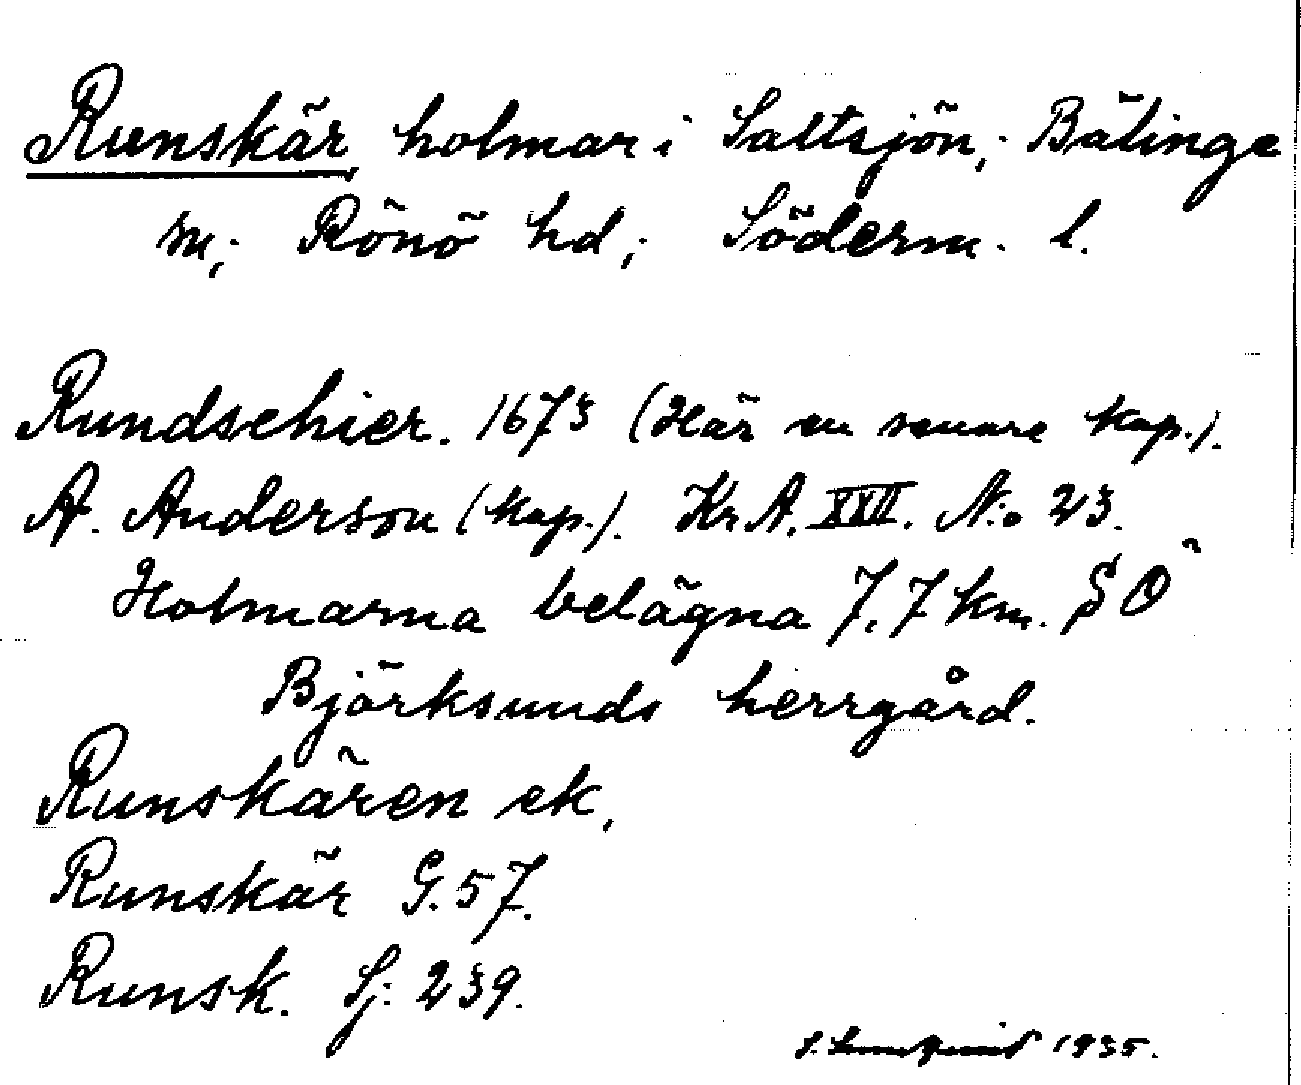 Runskär, holmar i Saltsjön; Bälinge
sn; Rönö hd; Söderm. l.
Rundschier. 1673 (Här en senare kap.).
A. Anderson (kap.). Kr.A. XVII. No 23.
Holmarna belägna 7,7 km. S Ö
Björksunds herrgård.
Runskären ek,
Runskär G. 57.
Runsk. Sj. 239.
1935.